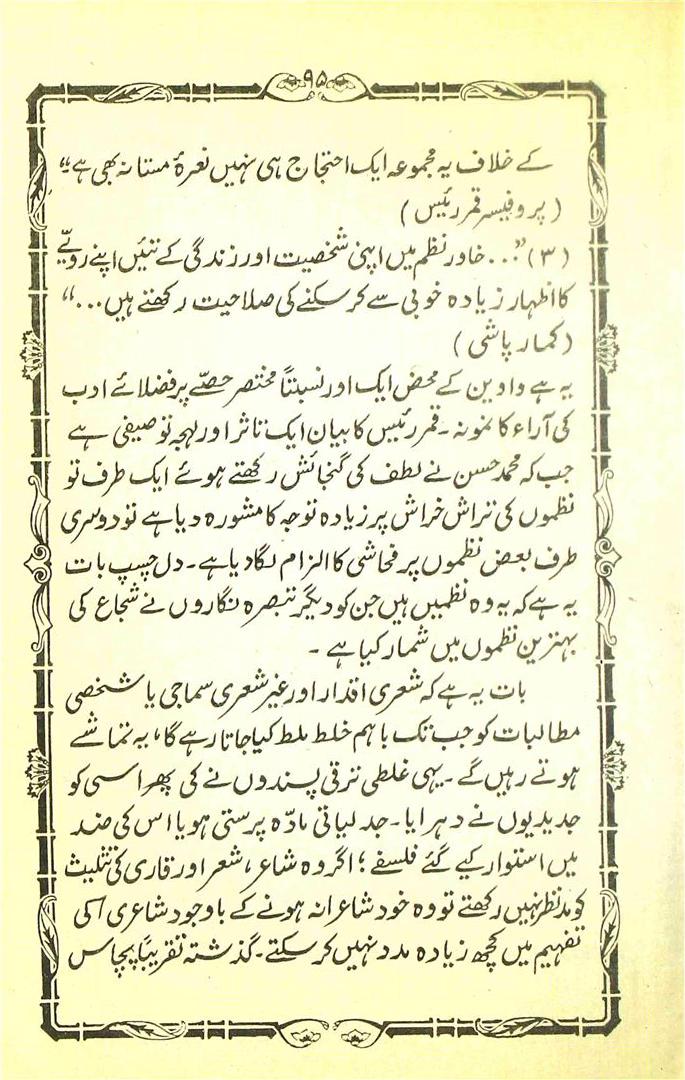 ۹۵
کے خلاف یہ مجموعہ ایک احتجاج ہی نہیں نعرۂ مستانہ بھی ہے“
(پروفیسر قمر رئیس)
(۳) ”... خاور نظم میں اپنی شخصیت اور زندگی کے تئیں اپنے رویّے
کا اظہار زیادہ خوبی سے کر سکنے کی صلاحیت رکھتے ہیں...“
(کمار پاشی)
یہ ہے واوین کے محض ایک اور نسبتاً مختصر حصّے پر فضلائے ادب
کی آراء کا نمونہ۔ قمر رئیس کا بیان ایک تاثر اور لہجہ توصیفی ہے
جب کہ محمد حسن نے لطف کی گنجائش رکھتے ہوئے ایک طرف تو
نظموں کی تراش خراش پر زیادہ توجہ کا مشورہ دیا ہے تو دوسری
طرف بعض نظموں پر فحاشی کا الزام لگا دیا ہے۔ دل چسپ بات
یہ ہے کہ یہ وہ نظمیں ہیں جن کو دیگر تبصرہ نگاروں نے شجاع کی
بہترین نظموں میں شمار کیا ہے ۔
بات یہ ہے کہ شعری اقدار اور غیر شعری سماجی یا شخصی
مطالبات کو جب تک باہم خلط ملط کیا جاتا رہے گا، یہ تماشے
ہوتے رہیں گے ۔ یہی غلطی ترقی پسندوں نے کی پھر اسی کو
جدیدیوں نے دہرایا۔ جدلیاتی مادّہ پرستی ہو یا اس کی ضد
میں استوار کیے گئے فلسفے ؛ اگر وہ شاعر، شعر اور قاری کی تثلیث
کو مدنظر نہیں رکھتے تو وہ خود شاعرانہ ہونے کے باوجود شاعری کی
تفہیم میں کچھ زیادہ مدد نہیں کر سکتے۔ گذشتہ تقریباً پچاس